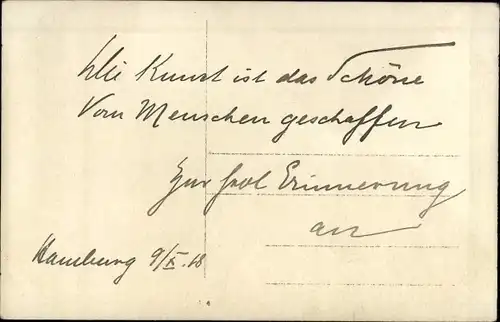 Die Kunst ist das Schöne
Vom Menschen geschaffen
Zur frdl Erinnerung
an
Hamburg 9/X.18